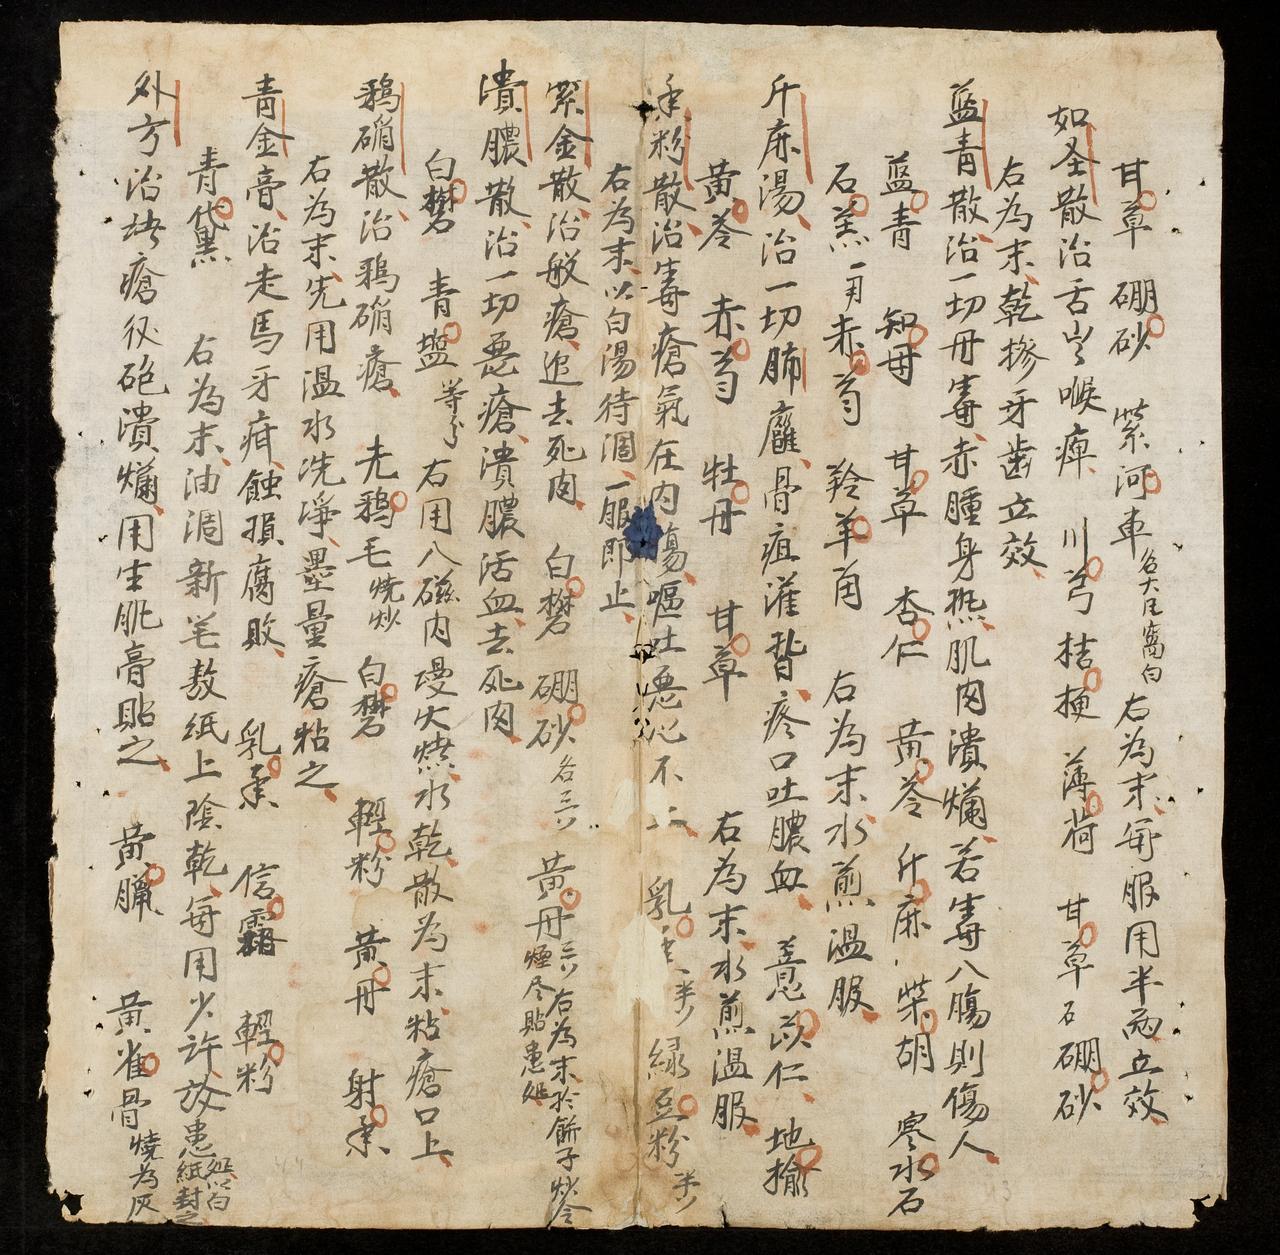 甘草 硼砂 紫河車 各大 右為末每服用半兩立效
如圣散治舌 喉痺 川芎 桔梗 薄荷 甘草 石硼砂
右為末乾掺牙齒立效
藍青散治一切丹毒赤腫身熱肌肉潰爛若毒入腸則傷人
藍青 知母 甘草 杏仁 黃芩 升麻 柴胡 寒水石
石羔 赤芍 羚羊角 右為末水煎温服
升麻湯治一切肺癰骨疽 疼口吐膿血 薏苡仁 地揄
黃芩 赤芍 牡丹 甘草 右為末水煎温服
粉散治毒瘡氣在内傷嘔吐悪心不 乳 半 緑豆粉 半
右為末以白湯待涸一服即止
紫金散治般瘡追去死肉 白礬 硼砂 各三 黃丹 右為末於餅子炒令煙尽貼患処
潰膿散治一切悪瘡潰膿活血去死肉
白礬 青盬 等分 右用八磁内 火 水乾散為末粘瘡口上
鵶硝散治鵶硝瘡 老鵶毛 燒炒 白礬 輕粉 黃丹 射香
右為末先用温水洗淨墨量瘡粘之
青金膏治走馬牙疳蝕損腐敗 乳香 信霜 輕粉
青黛 右為末油涸新笔敖紙上陰乾每用少許放患処以白紙封之
外方治 瘡 皰潰爛用生肌膏貼之 黃臘 黃雀骨 燒為灰